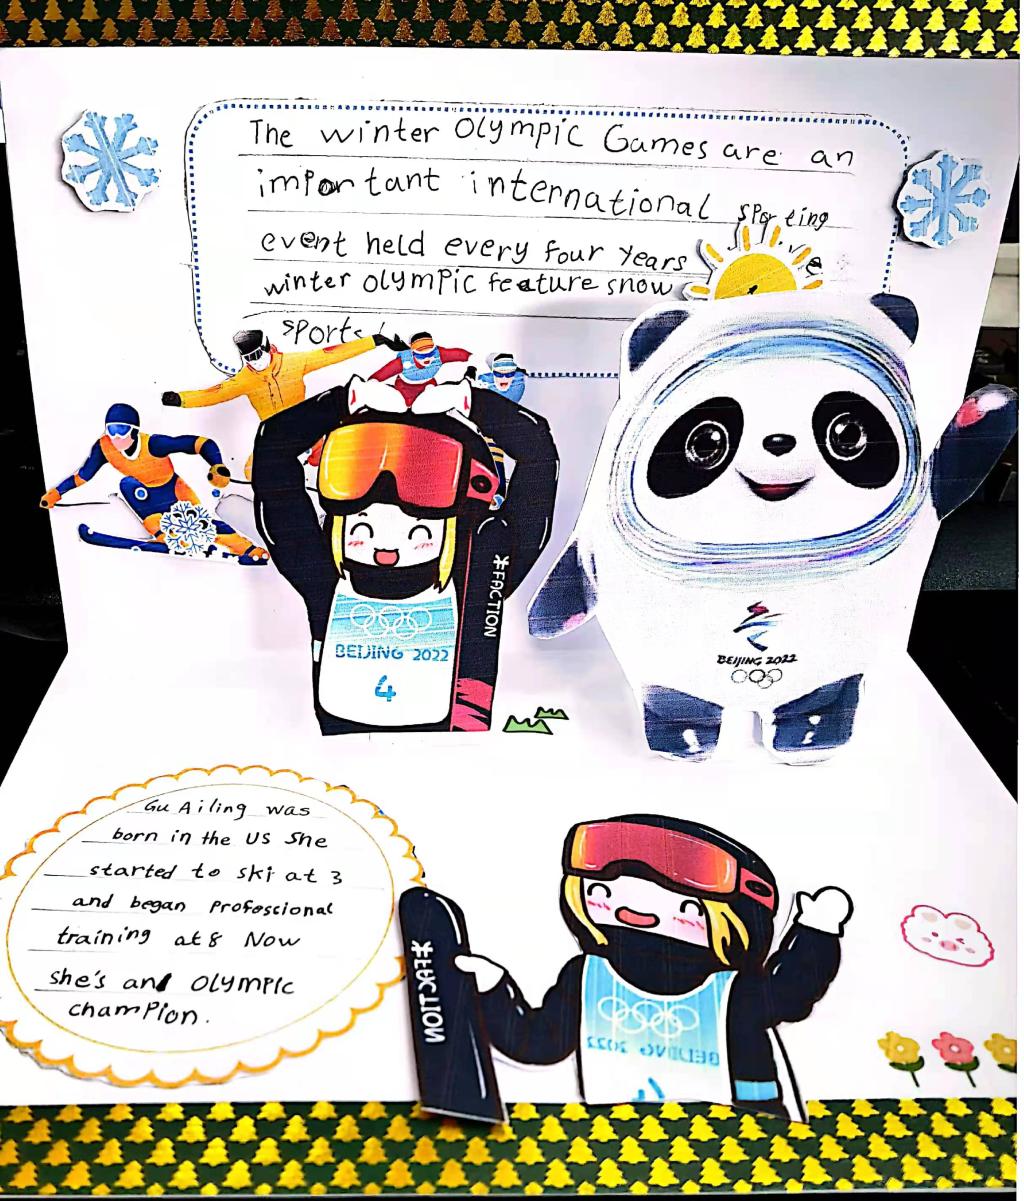 The winter OLYMPIC Games are an
important international sporting
event held every four years
winter OLYMPIC feature snow
sports
FACTION
BEIJING 2022
4
BEIJING 2022
Gu Ailing was
born in the US She
started to ski at 3
and began Profossional
training at 8 Now
she's and OLYMPIC
champion.
FACTION
BEIJING 2022
4